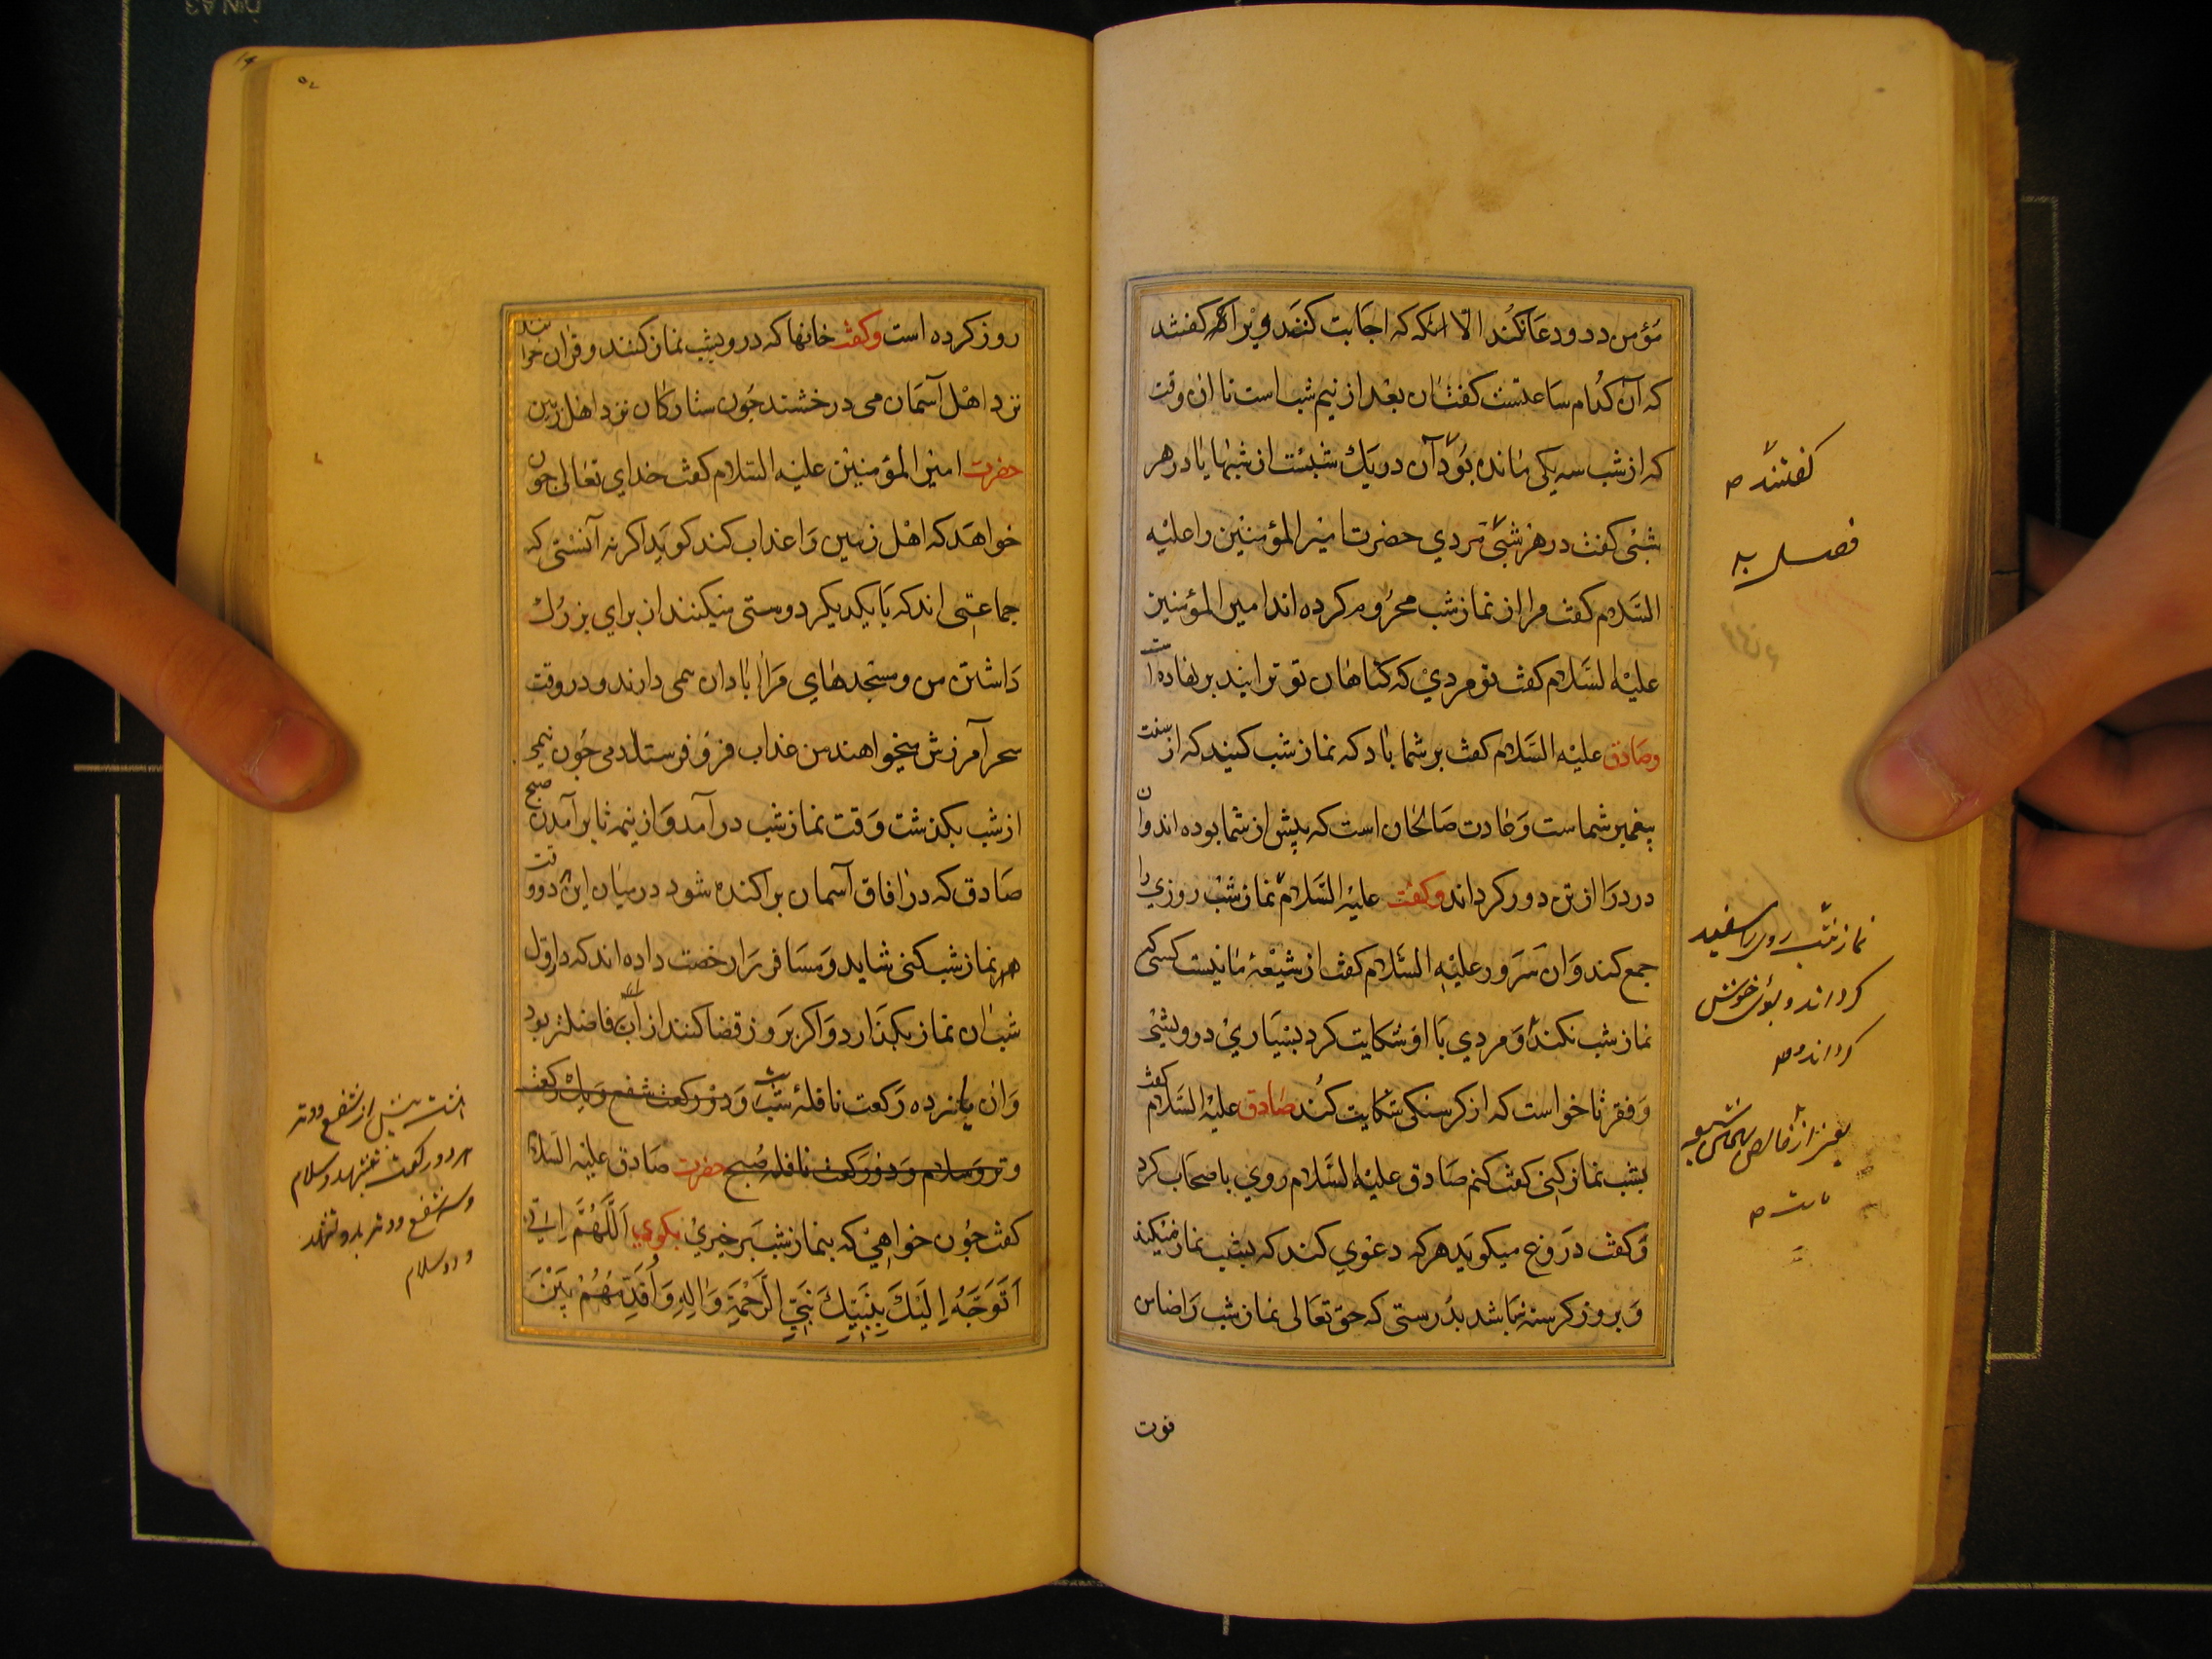 مؤمن درو دعا نکند الا انکه که اجابت کنند ویرا گفتند
که آن کدام ساعتست کفت ان بعد از نیم شب است تا ان وقت
که از شب سه یکی مانده بود آن در یك شبست از شبها یا در هر
شبی کفت در هر شبی مردی حضرت امیر المؤمنین را علیه
السلام کفت مرا از نماز شب محروم کرده اند امیر المؤمنین
علیه السلام کفت تو مردی که کناهان تو ترا بند بر نهاده است
وصادق علیه السلام کفت بر شما باد که نماز شب کنید که از سنت
پیغمبر شماست وعادت صالحان است که پیش از شما بوده اند وان
درد را از تن دور کرداند وکفت علیه السلام نماز شب روزی را
جمع کند وان سرور علیه السلام کفت از شیعهٔ ما نیست کسی که
نماز شب نکند ومردی با او شکایت کرد بسیاری درویشی
وفقر تا خواست که از کرسنکی شکایت کند صادق علیه السلام کفت
بشب نماز کنی کفت کنم صادق علیه السلام روی باصحاب کرد
وکفت دروغ میکوید هر که دعوی کند که بشب نماز میکند
وبروز کرسنه باشد بدرستی که حق تعالی نماز شب را ضامن
قوت
کفتند
فصل
نماز شب روی را سفید
کرداند و بوی خوش
کرداند
روز کرده است وکفت خانها که درو بشب نماز کنند وقران خوانند
نزد اهل آسمان می درخشند چون ستارکان نزد اهل زمین
حضرت امیر المؤمنین علیه السلام کفت خدای تعالی چون
خواهد که اهل زمین را عذاب کند کوید اکر نه آنستی که
جماعتی اند که با یکدیکر دوستی میکنند از برای بزرك
داشتن من ومسجدهای مرا ابادان می دارند ودر وقت
سحر آمرزش میخواهند من عذاب فرو فرستادمی چون نیمی
از شب بکذشت وقت نماز شب در آمد واز نیمه تا بر آمدن صبح
صادق که در افاق آسمان پراکنده شود در میان این دو وقت
هر نماز شب کنی شاید ومسافر را رخصت داده اند که در اول
شب ان نماز بکذارد واکر بروز قضا کنند از آن فاضلتر بود
وان یانزده رکعت نافلهٔ شب ودو رکعت شفع ویك رکعت
وتر وسلام ودو رکعت نافله صبح حضرت صادق علیه السلام
کفت چون خواهی که بنماز شب برخیزی بکوی اَللّهُمَّ اِنّی
اَتَوَجَّهُ اِلَیْكَ بِنَبِیِّكَ نَبِیِّ الرَّحْمَةِ وَالِهِ وَاُقَدِّمُهُمْ بَیْنَ
هشت پیش از شفع ووتر
هر دو رکعت بتشهد وسلام
وسه شفع ووتر بدو تشهد
ودو سلام